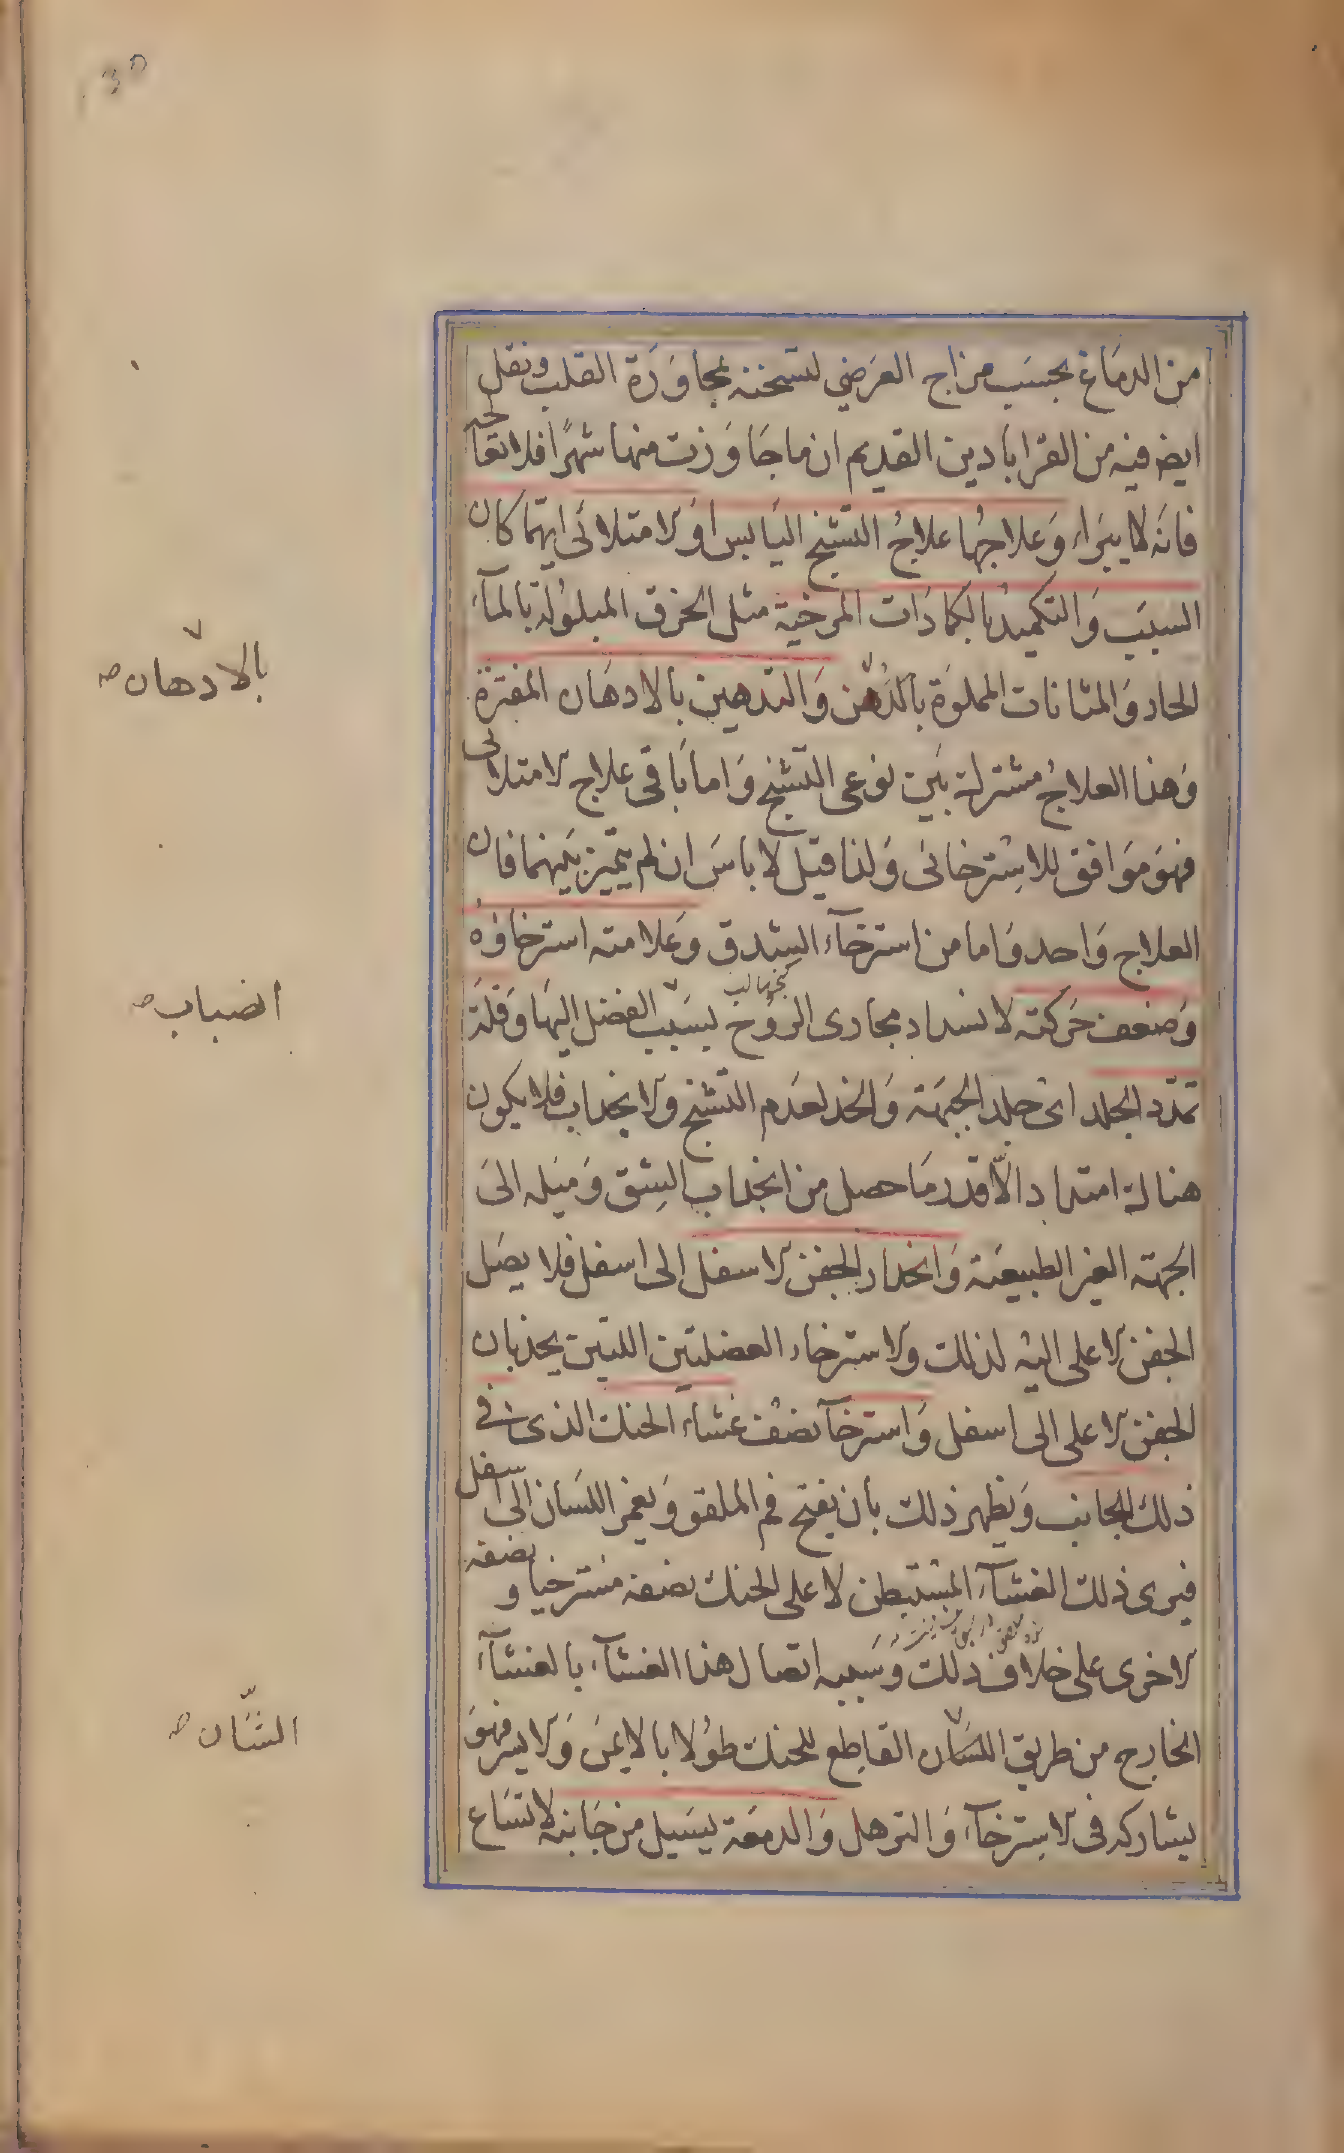 من الدمَاغ بحسَب مزاجه العَرضي لتسخنه بمجاوَرَة القلب ونقل
ايض فيه من القرابادين القديم ان ما جَاوَزت منها شهرًا فلا تعالجه
فانّه لا يبرَاء وَعلاجهُا علاجُ التشنج اليَابس اوَ الامتلائى ايهّما كان
السبَب وَالتكميدُ بالكمادَات المرخية مثل الخرق المبلوُلة بالمآء
الحار وَالمثانات المملوَة بالدُهن وَالتدهين بالادهَان المفترة
وَهذا العلاجُ مشترك بَين نوعى التشنج وَاما بَاقى علاج الامتلائى
فهوَ مَوَافق للاسِترخائى وَلذا قيل لا باسَ ان لم يتميز بَينهما فان
العلاج وَاحد وَاما من استرخآء الشِدق وَعَلامته استرخاوهُ
وَضعف حَركته لانسداد مجارى الروُح بسَبب الفضل اليهَا وَقلة
تمدّد الجلد اىْ جلد الجبهَة وَالخد لعدَم التشنج وَالانجذاب فلا يكون
هناك امتداد الاّ قدر مَا حصل من انجذاب الشِق وَميَله الىَ
الجهة الغير الطبيعَية وَانحدار الجفن الاسفل الى اسفل فلا يصَل
الجفن الاعلى اليْه لذلك وَلاسترخاء العضلتَين اللتين يجذبان
الجفن الاعلى الى اسفل وَاسترخآ نصْف غشاء الحنك الذى فى
ذلك الجانب وَيظهر ذلك بان يفتح فم الملقو وَيغمز اللسَان الى اسفل
فيرى ذلك الغشآء المسْتبطن لاعلى الحنك نصفه مسْترخيا و نصفه
الاخرى على خلاف ذلك وسَببه اتصال هذا الغشآء بالغشآء
الخارج من طريق اللسَان القاطع للحنك طوُلا بالايمَن وَالايسر فهوَ
يشاركه فى الاسِترخآء وَالترهل وَالدمعَة يسَيل من جَانبه لاتسَاع
بالادهان
انصباب
الشَّان